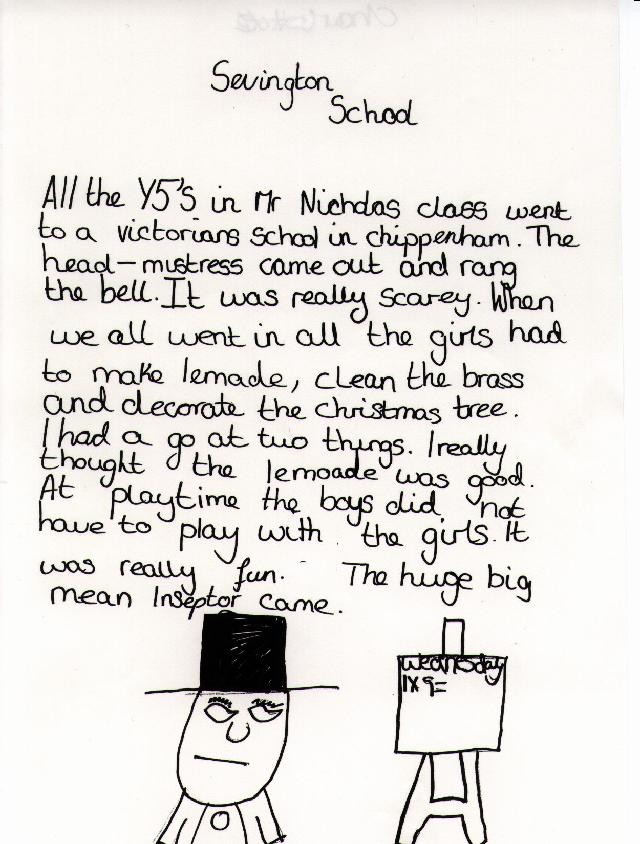 Sevington
School
All the Y5's in Mr Nicholas class went
to a victorians school in chippenham. The
head-mistress came out and rang
the bell. It was really scarey. When
we all went in all the girls had
to make lemade, clean the brass
and decorate the christmas tree.
I had a go at two things. I really
thought the lemoade was good.
At playtime the boys did not
have to play with the girls. It
was really fun. The huge big
mean Inseptor came.
Wednesday
1x9=